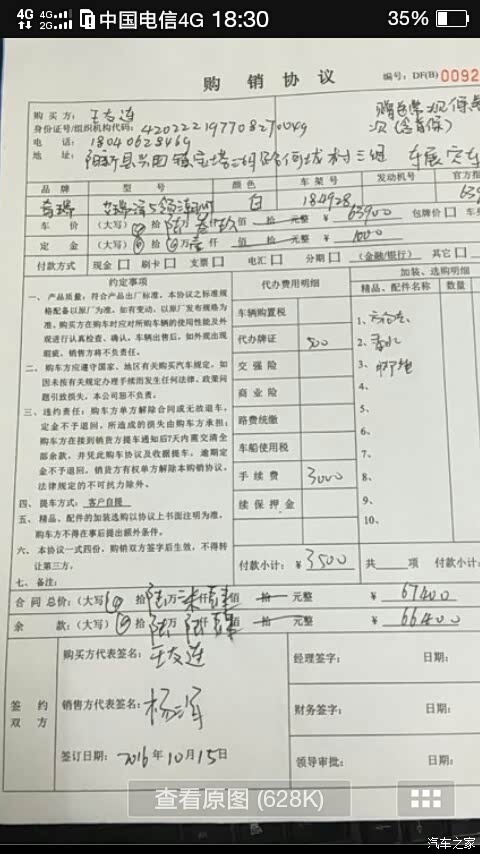 4G 4G 2G 中国电信4G 18:30 35%
购 销 协 议 编号：DF(B) 0092
购 买 方：王友连
身份证号/组织机构代码：420222197708270049
电 话：18040628469
地 址：阳新县 镇 村三组
品 牌 型 号 颜 色 车 架 号 发动机号 官方指
奇瑞 艾瑞泽5 白 184928 639
车 价 （大写） 拾 陆万叁仟玖佰 拾 元整 ￥63900 包牌价 车
定 金 （大写） 拾 万壹仟 佰 拾 元整 ￥1000
付款方式 现金 刷卡 支票 电汇 分期 （金融/银行） 其它
约定事项 代办费用明细 加装、选购明细
精品、配件名称 数量
一、产品质量：符合产品出厂标准。本协议之标准规
格配备以原厂为准，如有变动，以原厂发布规格为
准。购买方在购车时应对所购车辆的使用性能及外
观进行认真检查、确认，车辆出售后，如外观出现
瑕疵，销售方将不负责任。
二、购车方应遵守国家、地区有关购买汽车规定，如
因未按有关规定办理手续而发生任何法律、政策问
题引致损失，本公司恕不负责。
三、违约责任：购车方单方解除合同或无故退车，
定金不予退回，所造成的损失由购车方承担；
购车方在接到销货方提车通知后7天内需交清全
部余款，并凭此购车协议及收据提车，逾期定
金不予退回。销货方有权单方解除本购销协议。
法律规定的不可抗力除外。
四、提车方式：客户自提
五、精品、配件的加装选购以协议上书面注明为准，
购车方不得在事后提出额外条件。
六、本协议一式四份，购销双方签字后生效，不得转
让第三方。
七、备注：
车辆购置税
代办牌证 500
交 强 险
商 业 险
路费统缴
车船使用税
手 续 费 3000
续 保 押 金
付款小计：￥3500
1、
2、香水
3、
4、
5、
6、
7、
8、
9、
10、
共 项 付款小计：
合同总价：（大写） 拾 陆万柒仟肆佰 拾 元整 ￥67400
余 款：（大写） 拾 陆万陆仟肆佰 拾 元整 ￥66400
签 约
双 方
购买方代表签名：王友连
销售方代表签名：
签订日期：2016年10月15日
经理签字： 日期：
财务签字： 日期：
领导审批： 日期：
查看原图 (628K)
汽车之家